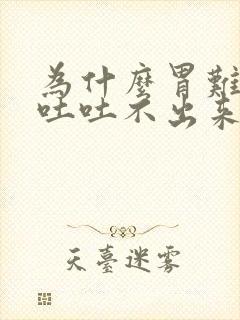 為什麼胃難
吐吐不出來
天臺迷霧